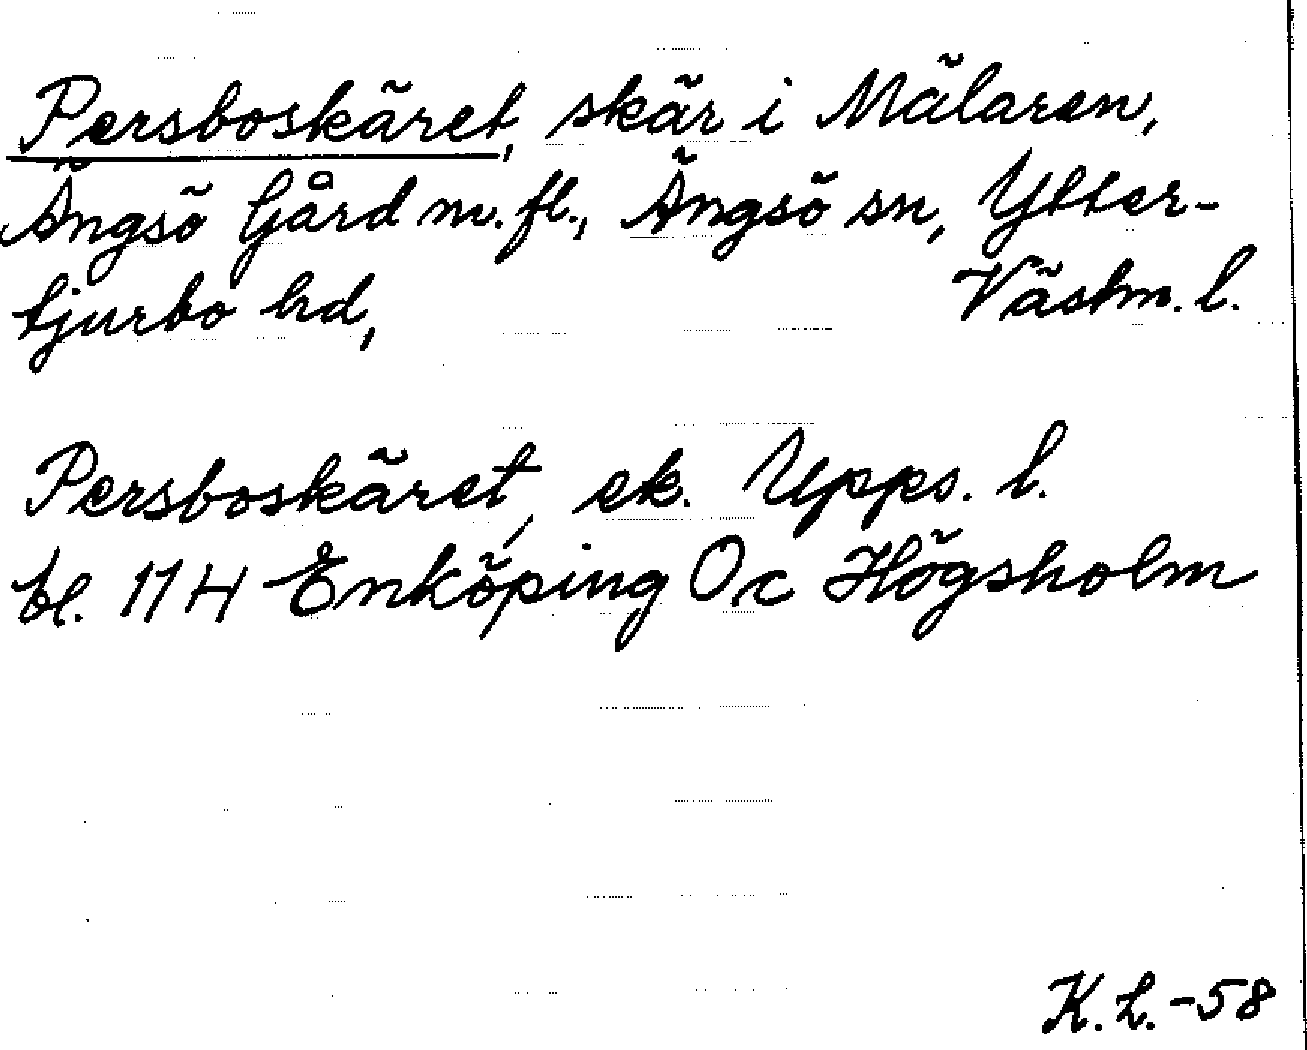 Persboskäret, skär i Mälaren,
Ängsö Gård m.fl., Ängsö sn, Ytter-
tjurbo hd, Västm. l.
Persboskäret, ek. Upps. l.
bl. 11H Enköping O, c Högsholm
K.L.-58